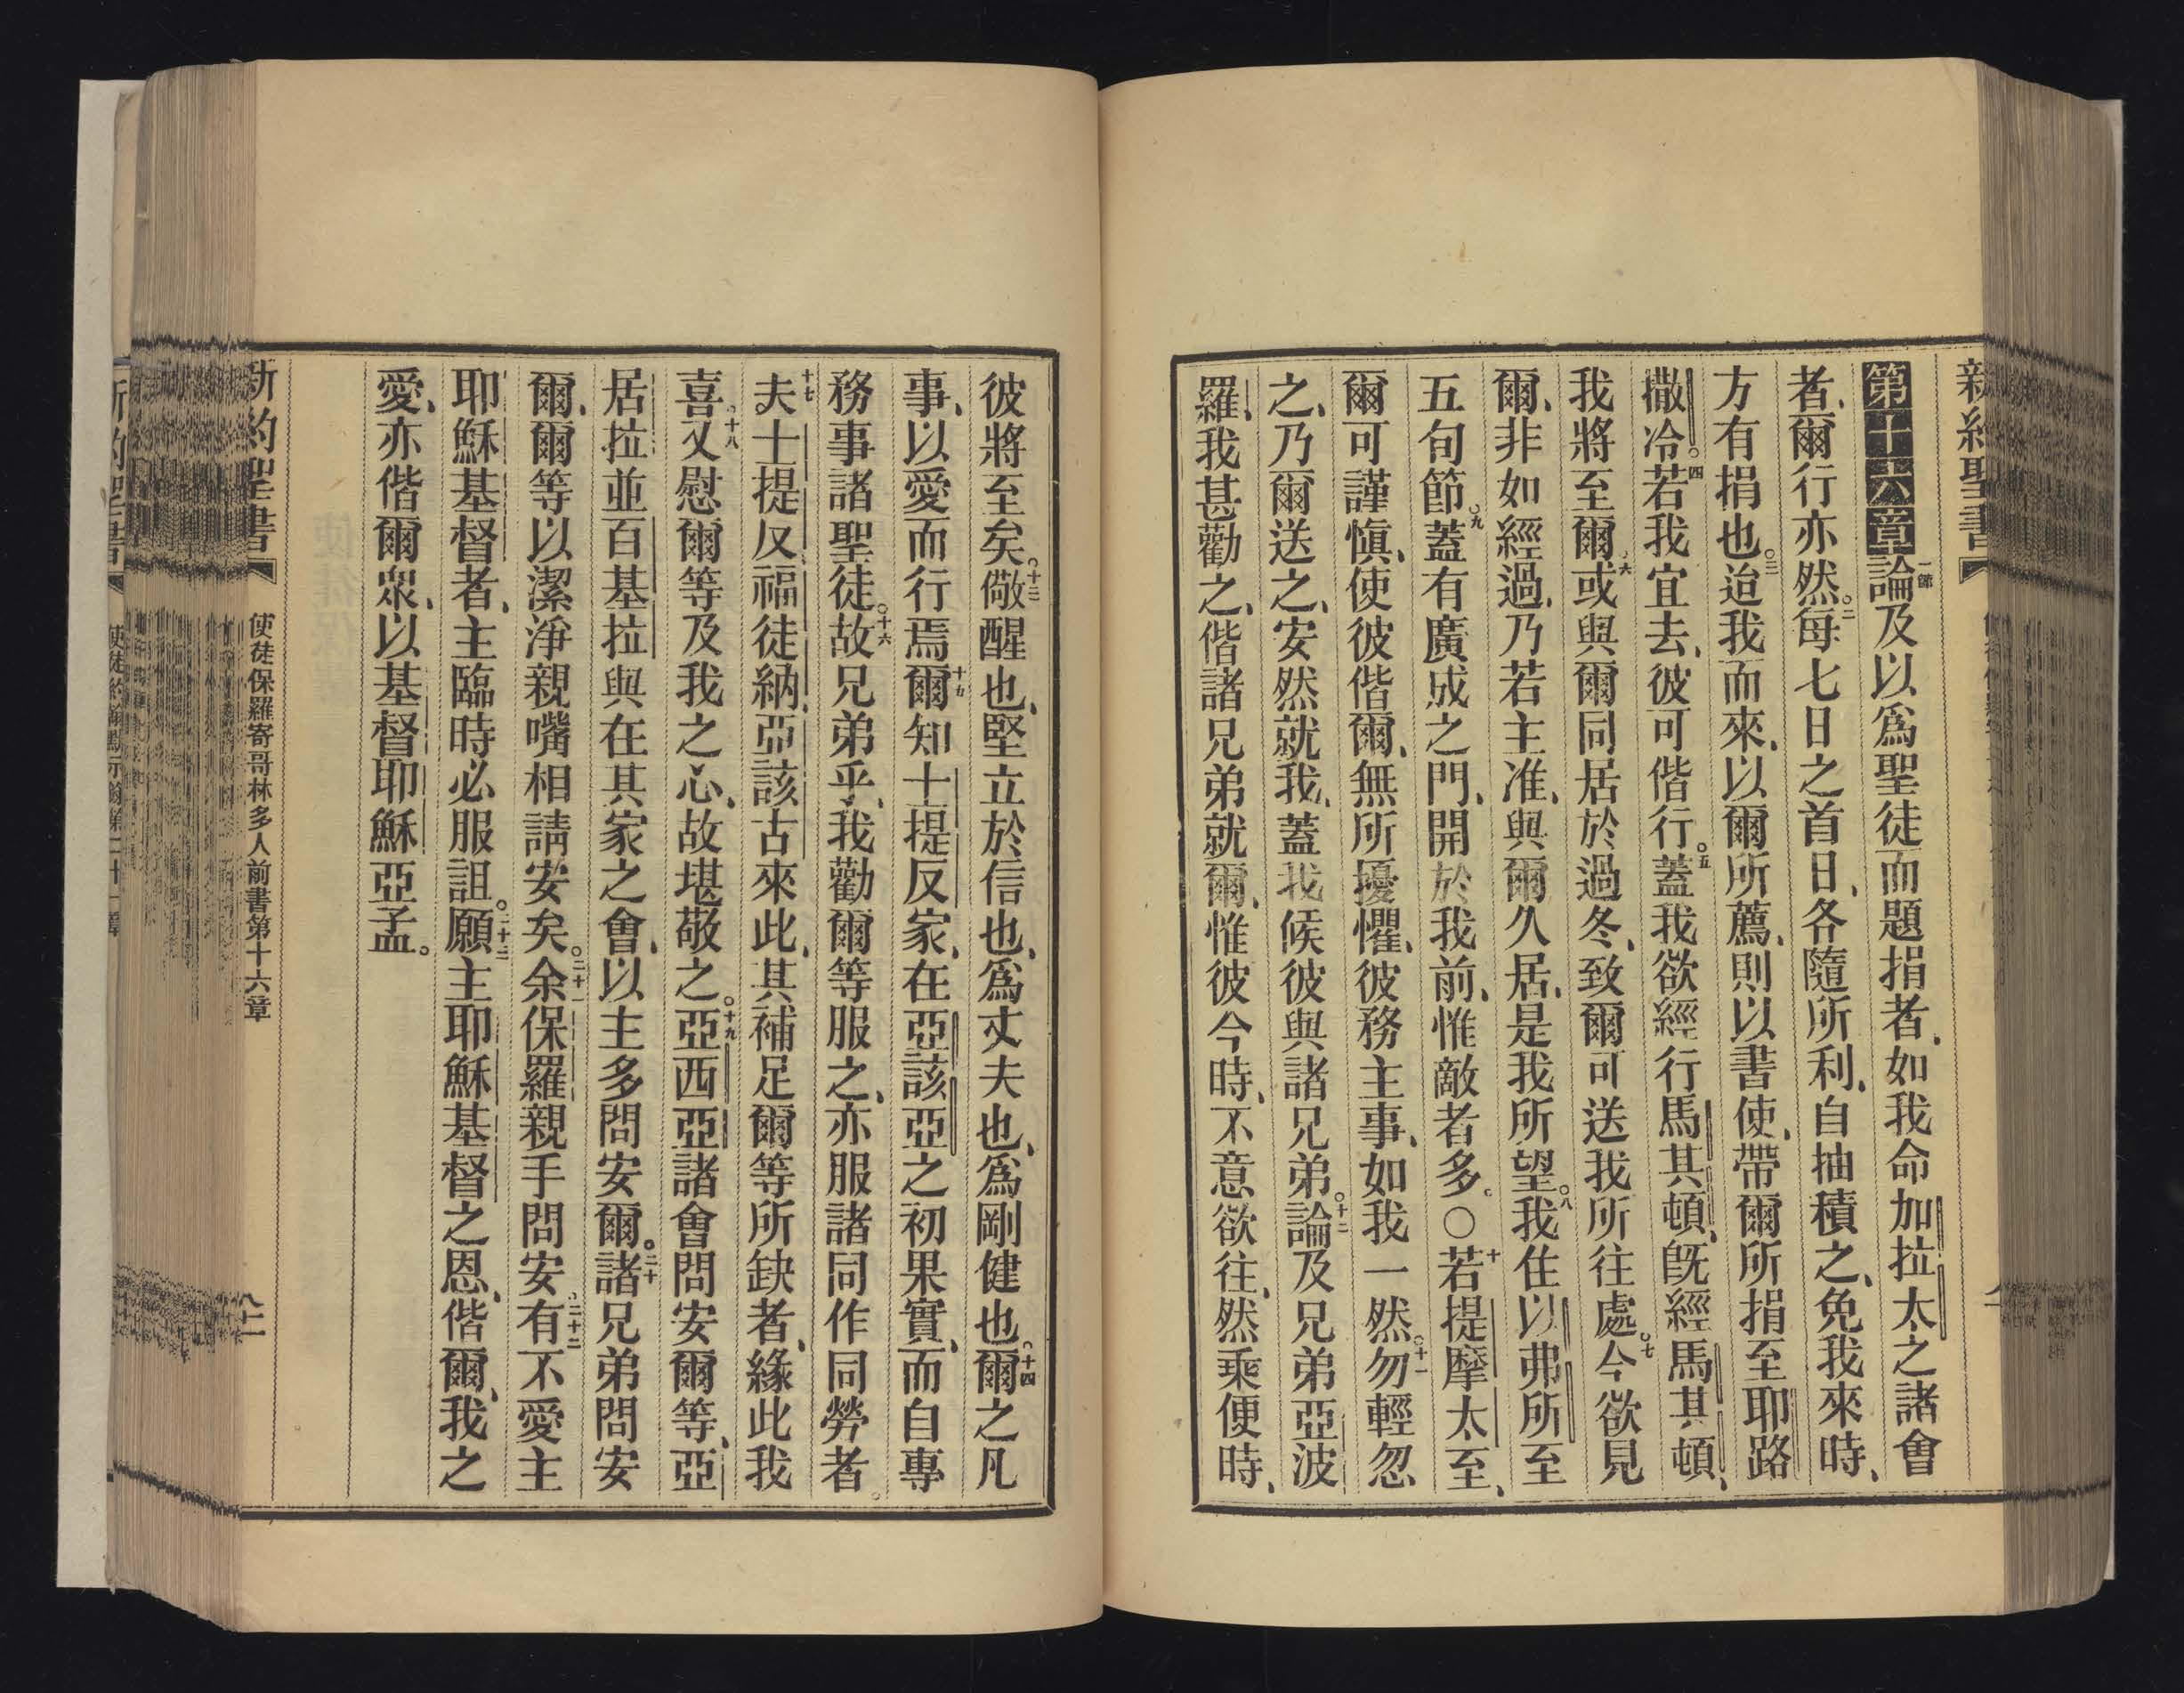 新約聖書
第十六章一節論及以爲聖徒而題捐者、如我命加拉太之諸會
者、爾行亦然。二每七日之首日、各隨所利、自抽積之、免我來時、
方有捐也。三迨我而來、以爾所薦、則以書使、帶爾所捐至耶路
撒冷。四若我宜去、彼可偕行。五蓋我欲經行馬其頓、旣經馬其頓、
我將至爾、六或與爾同居於過冬、致爾可送我所往處。七今欲見
爾、非如經過、乃若主准、與爾久居、是我所望。八我住以弗所至
五旬節。九蓋有廣成之門、開於我前、惟敵者多。○十若提摩太至、
爾可謹愼、使彼偕爾、無所擾懼、彼務主事、如我一然。十一勿輕忽
之、乃爾送之、安然就我、蓋我候彼與諸兄弟。十二論及兄弟亞波
羅、我甚勸之、偕諸兄弟就爾、惟彼今時、不意欲往、然乘便時、
彼將至矣。十三儆醒也、堅立於信也、爲丈夫也、爲剛健也。十四爾之凡
事、以愛而行焉。十五爾知士提反家、在亞該亞之初果實、而自專
務事諸聖徒。十六故兄弟乎、我勸爾等服之、亦服諸同作同勞者。
十七夫士提反、福徒納、亞該古來此、其補足爾等所缺者、緣此我
喜。十八又慰爾等及我之心、故堪敬之。十九亞西亞諸會問安爾等、亞
居拉並百基拉與在其家之會、以主多問安爾。二十諸兄弟問安
爾、爾等以潔淨親嘴相請安矣。二十一余保羅親手問安、二十二有不愛主
耶穌基督者、主臨時必服詛。二十三願主耶穌基督之恩、偕爾、我之
愛、亦偕爾衆、以基督耶穌亞孟。
新約聖書
使徒保羅寄哥林多人前書第十六章